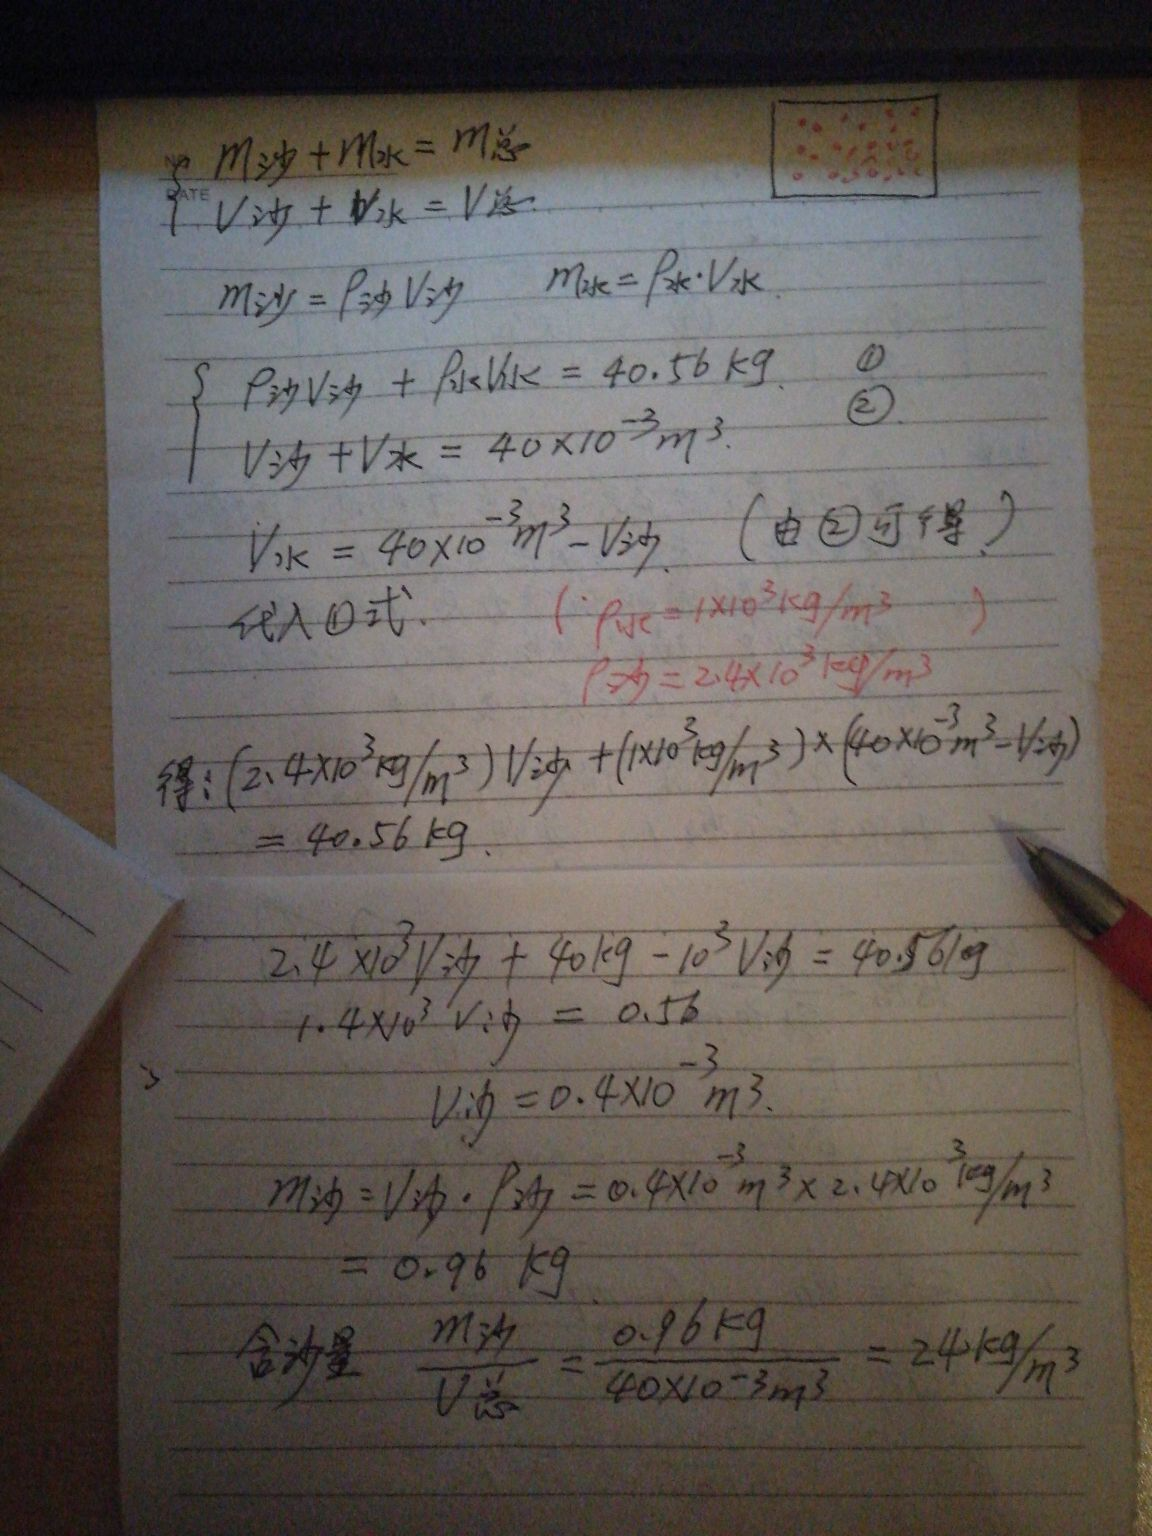 No
DATE
m沙+m水=m总
V沙+V水=V总
m沙=ρ沙V沙 m水=ρ水·V水
ρ沙V沙+ρ水V水=40.56kg. ①
V沙+V水=40×10⁻³m³. ②
V水=40×10⁻³m³-V沙. (由②可得)
代入①式. (ρ水=1×10³kg/m³)
ρ沙=2.4×10³kg/m³
得:(2.4×10³kg/m³)V沙+(1×10³kg/m³)×(40×10⁻³m³-V沙)
=40.56kg.
2.4×10³V沙+40kg-10³V沙=40.56kg
1.4×10³V沙=0.56
V沙=0.4×10⁻³m³.
m沙=V沙·ρ沙=0.4×10⁻³m³×2.4×10³kg/m³
=0.96kg
含沙量 m沙/V总=0.96kg/40×10⁻³m³=24kg/m³